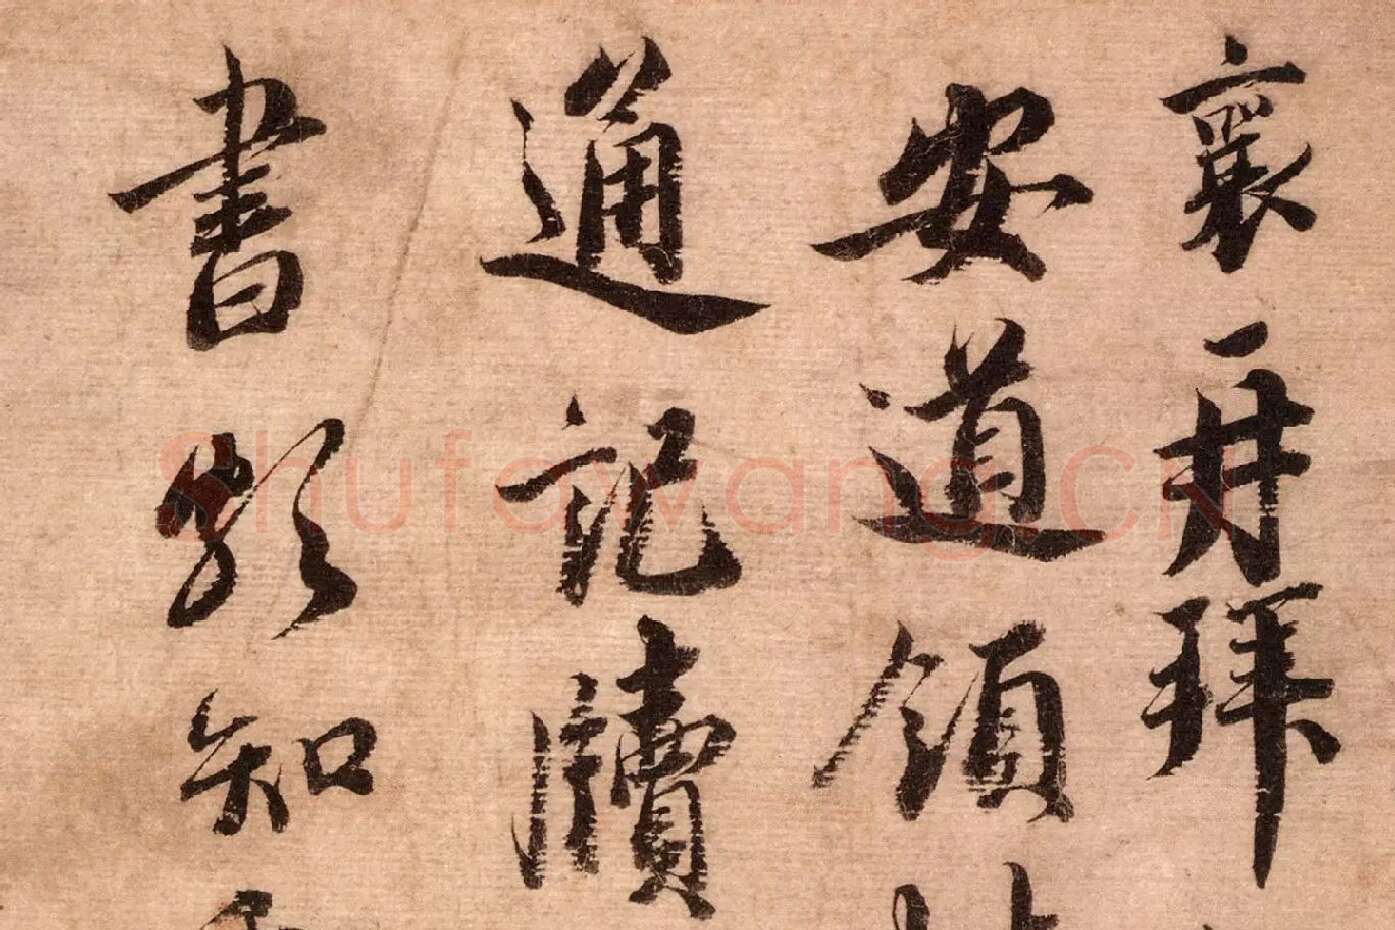 襄再拜
安道領
通記牘
書頗知
shufawang.cn